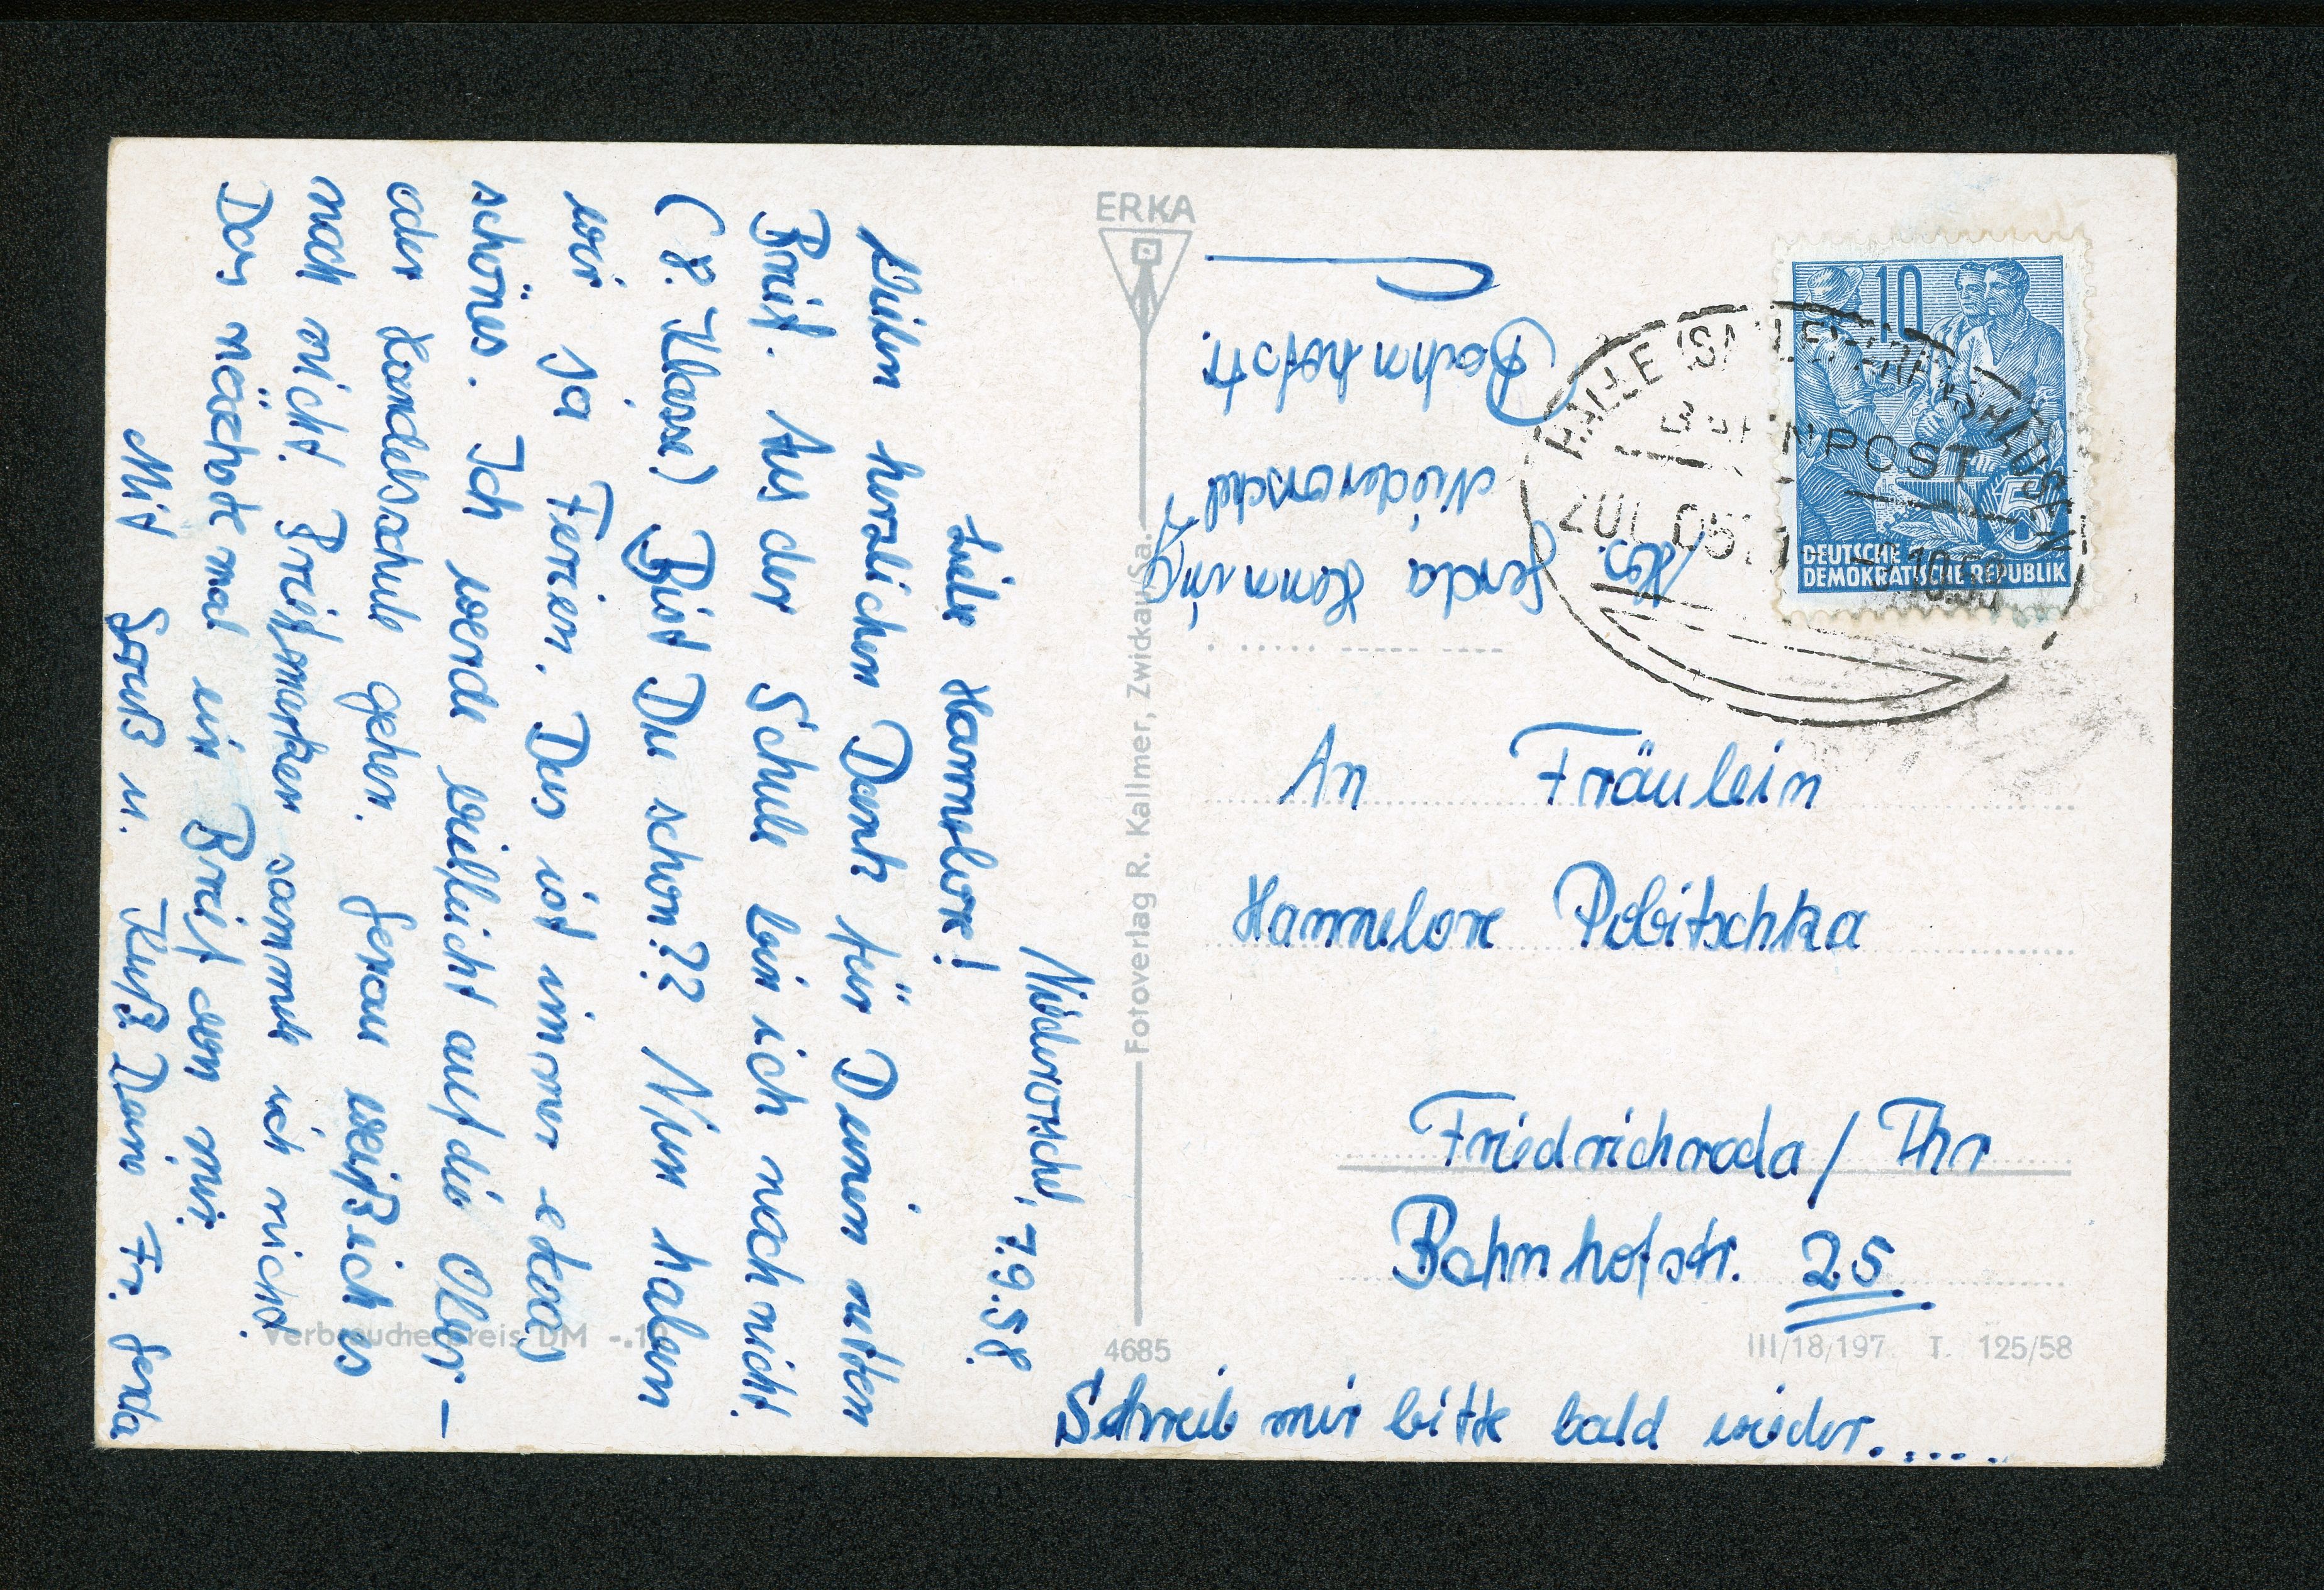 Niederorschel, 7.9.58.
Liebe Hannelore!
Vielen herzlichen Dank für Deinen netten
Brief. Aus der Schule bin ich noch nicht.
(8. Klasse) Bist Du schon?? Nun haben
wir ja Ferien. Das ist immer etwas
schönes. Ich werde vielleicht auf die Ober-
oder Handelsschule gehen. Genau weiß ich es
noch nicht. Briefmarken sammle ich nicht.
Das nächste mal ein Brief von mir.
Mit Gruß u. Kuß Deine Fr. Gerda
ERKA
Fotoverlag R. Kallmer, Zwickau/Sa.
4685
Abs.
Gerda Henning
Niederorschel
Bahnhofstr.
10
DEUTSCHE
DEMOKRATISCHE REPUBLIK
HALLE (SAALE)
BAHNPOST
ZUG
An Fräulein
Hannelore Pobitschka
Friedrichroda / Thr
Bahnhofstr. 25
Verbraucherpreis DM
III/18/197 T. 125/58
Schreib mir bitte bald wieder.....